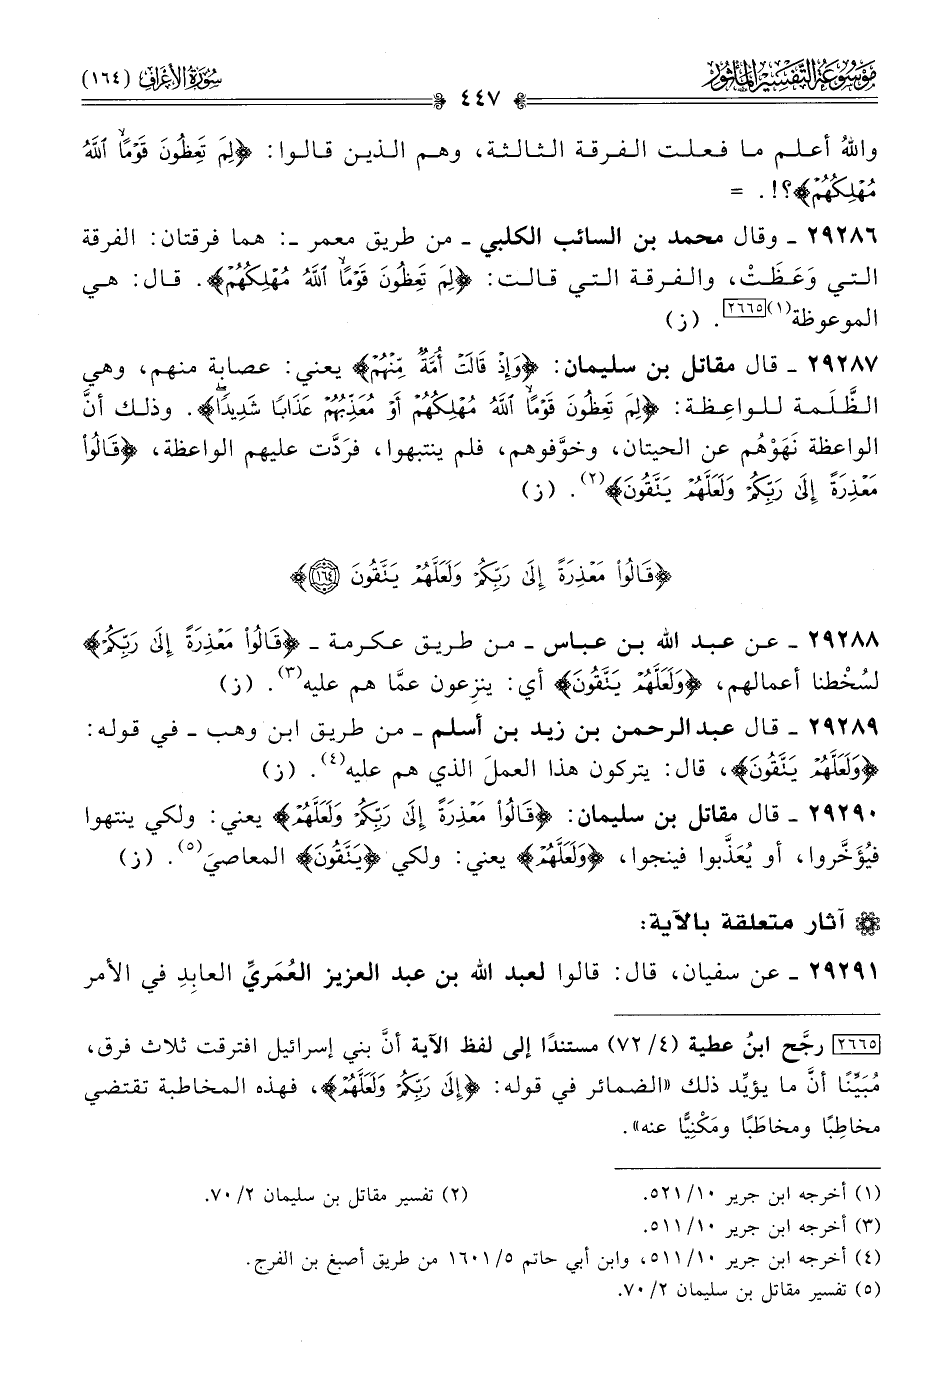 مَوْسُوعَة التَّفْسِير المَأْثُور
٤٤٧
سُورَةُ الأَعْرَافِ (١٦٤)
واللهُ أعلم ما فعلت الفرقة الثالثة، وهم الذين قالوا: ﴿لِمَ تَعِظُونَ قَوْمًاۙ ٱللَّهُ
مُهْلِكُهُمْ﴾؟!. =
٢٩٢٨٦ ـ وقال محمد بن السائب الكلبي ـ من طريق معمر ـ: هما فرقتان: الفرقة
التي وَعَظَتْ، والفرقة التي قالت: ﴿لِمَ تَعِظُونَ قَوْمًاۙ ٱللَّهُ مُهْلِكُهُمْ﴾. قال: هي
الموعوظة(١)[٢٦٦٥]. (ز)
٢٩٢٨٧ ـ قال مقاتل بن سليمان: ﴿وَإِذْ قَالَتْ أُمَّةٌ مِّنْهُمْ﴾ يعني: عصابة منهم، وهي
الظَّلَمة للواعِظة: ﴿لِمَ تَعِظُونَ قَوْمًاۙ ٱللَّهُ مُهْلِكُهُمْ أَوْ مُعَذِّبُهُمْ عَذَابًا شَدِيدًاۖ﴾. وذلك أنَّ
الواعظة نَهَوْهُم عن الحيتان، وخوَّفوهم، فلم ينتبهوا، فرَدَّت عليهم الواعظة، ﴿قَالُواْ
مَعْذِرَةً إِلَىٰ رَبِّكُمْ وَلَعَلَّهُمْ يَتَّقُونَ﴾(٢). (ز)
﴿قَالُواْ مَعْذِرَةً إِلَىٰ رَبِّكُمْ وَلَعَلَّهُمْ يَتَّقُونَ ١٦٤﴾
٢٩٢٨٨ ـ عن عبد الله بن عباس ـ من طريق عكرمة ـ ﴿قَالُواْ مَعْذِرَةً إِلَىٰ رَبِّكُمْ﴾
لسُخْطنا أعمالهم، ﴿وَلَعَلَّهُمْ يَتَّقُونَ﴾ أي: ينزِعون عمَّا هم عليه(٣). (ز)
٢٩٢٨٩ ـ قال عبدالرحمن بن زيد بن أسلم ـ من طريق ابن وهب ـ في قوله:
﴿وَلَعَلَّهُمْ يَتَّقُونَ﴾، قال: يتركون هذا العملَ الذي هم عليه(٤). (ز)
٢٩٢٩٠ ـ قال مقاتل بن سليمان: ﴿قَالُواْ مَعْذِرَةً إِلَىٰ رَبِّكُمْ وَلَعَلَّهُمْ﴾ يعني: ولكي ينتهوا
فيُؤَخَّروا، أو يُعَذَّبوا فينجوا، ﴿وَلَعَلَّهُمْ﴾ يعني: ولكي ﴿يَتَّقُونَ﴾ المعاصيَ(٥). (ز)
آثار متعلقة بالآية:
٢٩٢٩١ ـ عن سفيان، قال: قالوا لعبد الله بن عبد العزيز العُمَريِّ العابِدِ في الأمر
[٢٦٦٥] رجَّح ابنُ عطية (٧٢/٤) مستندًا إلى لفظ الآية أنَّ بني إسرائيل افترقت ثلاث فرق،
مُبَيِّنًا أنَّ ما يؤيِّد ذلك «الضمائر في قوله: ﴿إِلَىٰ رَبِّكُمْ وَلَعَلَّهُمْ﴾، فهذه المخاطبة تقتضي
مخاطِبًا ومخاطَبًا ومَكْنِيًّا عنه».
(١) أخرجه ابن جرير ٥٢١/١٠.
(٢) تفسير مقاتل بن سليمان ٧٠/٢.
(٣) أخرجه ابن جرير ٥١١/١٠.
(٤) أخرجه ابن جرير ٥١١/١٠، وابن أبي حاتم ١٦٠١/٥ من طريق أصبغ بن الفرج.
(٥) تفسير مقاتل بن سليمان ٧٠/٢.